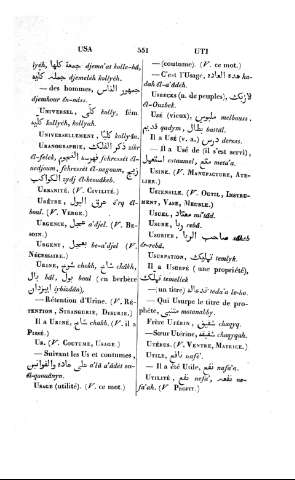 USA 551 UTI
iyéh, كلها جمعة djema'at kolle-há,
كليه جمله djemeléh kollyéh.
— des hommes, جمهور الناس
djemhour én-náss.
UNIVERSEL, كلي kolly, fém.
كلية kollyah.
UNIVERSELLEMENT, كليا kollyấn.
URANOGRAPHIE, ذكر الفلك zikr
él-felek, فهرسة النجوم fehresset én-
nedjoum,
الكواكب
URBANITÉ. (V. CIVILITÉ.)
URÈTRE, عرق البول e'rq él-
boul. (V. VERGE.)
URGENCE, عجيل (V. BE-
SOIN.)
URGENT, بعجيل be-a'djel (V.
NÉCESSAIRE.)
URINE, شاخ chákh,
بال bâl, بول boul (en berbère
ايبزدان
— Rétention d'Urine. (V. RÉ-
TENTION, STRANGURIE, DYSURIE.)
Il a URINÉ, شاخ chakh. (V. il a
PISSÉ.)
US. (V. COUTUME, USAGE.)
— Suivant les Us et coutumes,
على عادة والقوانين a'lä a'ádét ou-
él-qaouányn.
USAGE (utilité). (V. ce mot.)
— (coutume). (V. ce mot.)
— C'est l'Usage, هذه العادة ha-
dah él-a'ádéh.
USBECKS (n. de peuples), الازبك
él-Ouzbek.
USÉ (vieux), ملبوس melbous,
قديم qadym, بطال battâl.
Il a USÉ (v. a.), درس deress.
— Il a Usé de (il s'est servi),
استعمل estaamel, متع meta'a.
USINE. (V. MANUFACTURE, ATE-
LIER.)
USTENSILE. (V. OUTIL, INSTRU-
MENT, VASE, MEUBLE.)
USUEL, معتاد mo'tád.
USURE, ربا rebâ.
USURIER, صاحب الربا sáheb
ér-rebâ.
USURPATION, تمليك temlyk.
Il a USURPÉ (une propriété),
تملك temellek
— (un titre)
— Qui Usurpe le titre de pro-
phète, متنبي motenabby.
Frère UTÉRIN, شقيق chaqyq.
— Sœur Utérine, شقيقه chaqyqah.
UTÉRUS. (V. VENTRE, MATRICE.)
UTILE, نافع nafé'.
— Il a été Utile, نفع nafa'a.
UTILITÉ, نفع nafa', نفعه ne-
fa'ah. (V. PROFIT.)